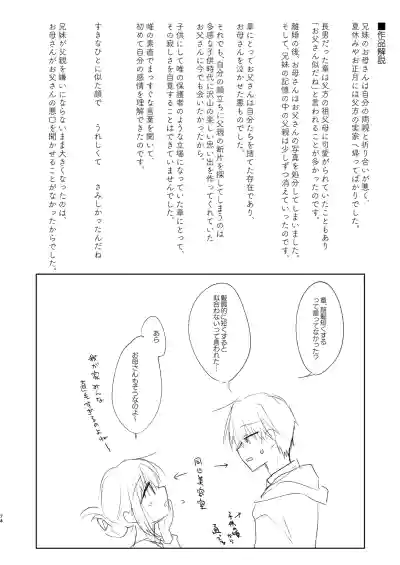 ■作品解説
兄妹のお母さんは自分の両親と折り合いが悪く、
夏休みやお正月には父方の実家へ帰ってばかりでした。
長男だった章は父方の祖父母に可愛がられていたこともあり
「お父さん似だね」と言われることが多かったのです。
離婚の後、お母さんはお父さんの写真を処分してしまいました。
そして、兄妹の記憶の中の父親は少しずつ消えていったのです。
章にとってお父さんは自分たちを捨てた存在であり、
お母さんを泣かせた悪者でした。
それでも、自分の顔立ちに父親の断片を探してしまうのは
多感な子供時代に沢山の楽しい思い出を作ってくれていた
お父さんに今でも会いたかったから。
子供にして唯の保護者のような立場になっていた章にとって、
その寂しさを自覚することはできていませんでした。
唯の素直でまっすぐな言葉を聞いて、
初めて自分の感情を理解できたのです。
すきなひとに似た顔で うれしくて さみしかったんだね
兄妹が父親を嫌いにならないまま大きくなったのは、
お母さんがお父さんの悪口を聞かせることがなかったからでした。
って言ってなかった?
髪質的に短くすると
似合わないって言われた…
あら
お母さんもそうなのよ～
同じ美容室
子供の頃から